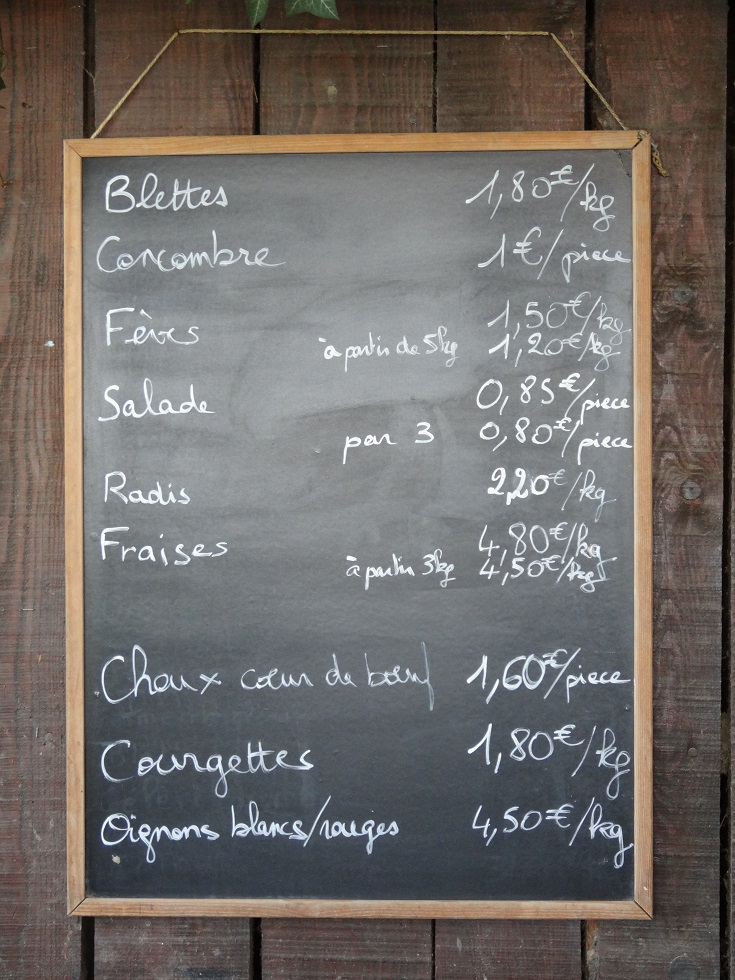 Blettes 1,80€/kg
Concombre 1€/piece
Fèves 1,50€/kg
à partir de 5kg 1,20€/kg
Salade 0,85€/piece
par 3 0,80€/piece
Radis 2,20€/kg
Fraises 4,80€/kg
à partir 3kg 4,50€/kg
Choux cœur de bœuf 1,60€/piece
Courgettes 1,80€/kg
Oignons blancs/rouges 4,50€/kg